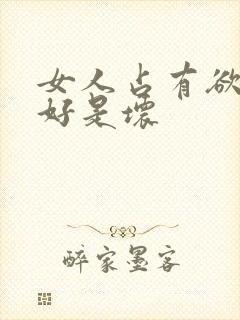 女人占有欲
好是坏
醉家墨客